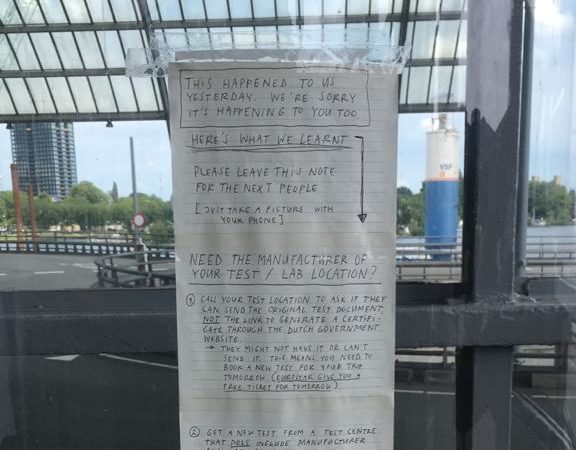 THIS HAPPENED TO US
YESTERDAY. WE'RE SORRY
IT'S HAPPENING TO YOU TOO
HERE'S WHAT WE LEARNT
PLEASE LEAVE THIS NOTE
FOR THE NEXT PEOPLE
[JUST TAKE A PICTURE WITH
YOUR PHONE]
NEED THE MANUFACTURER OF
YOUR TEST / LAB LOCATION?
① CALL YOUR TEST LOCATION TO ASK IF THEY
CAN SEND THE ORIGINAL TEST DOCUMENT,
NOT THE LINK TO GENERATE A CERTIFI-
CATE THROUGH THE DUTCH GOVERNMENT
WEBSITE.
→ THEY MIGHT NOT HAVE IT OR CAN'T
SEND IT. THIS MEANS YOU NEED TO
BOOK A NEW TEST FOR YOUR TRIP
TOMORROW (EUROSTAR GIVE YOU A
FREE TICKET FOR TOMORROW)
② GET A NEW TEST FROM A TEST CENTRE
THAT DOES INCLUDE MANUFACTURER
VSF